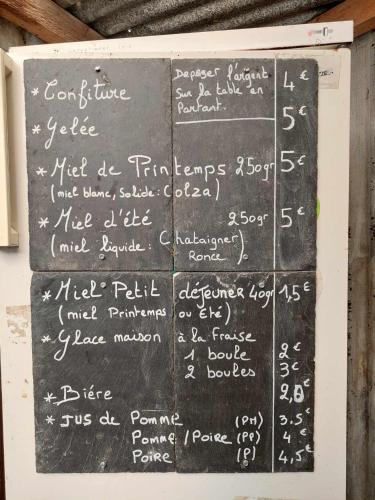 * Confiture 4€
Deposer l'argent
sur la table en
Partant.
* Gelée 5€
* Miel de Printemps 250gr 5€
(miel blanc, Solide: Colza)
* Miel d'été 250gr 5€
(miel liquide: Chataigner
Ronce)
* Miel Petit déjeuner 40gr 1,5€
(miel Printemps ou Eté)
* Glace maison à la Fraise
1 boule 2€
2 boules 3€
* Biére
* JUS de Pomme (PM) 3.5€
Pomme/Poire (PP) 4€
Poire (P) 4,5€